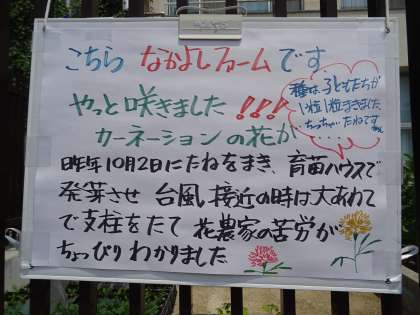 こちら なかよしファームです
やっと咲きました!!!
カーネーションの花が
種は子どもたちが
1粒1粒まきました
ちっちゃーいたねです
昨年10月2日にたねをまき、育苗ハウスで
発芽させ 台風接近の時は大あわて
で支柱をたて 花農家の苦労が
ちょっぴりわかりました